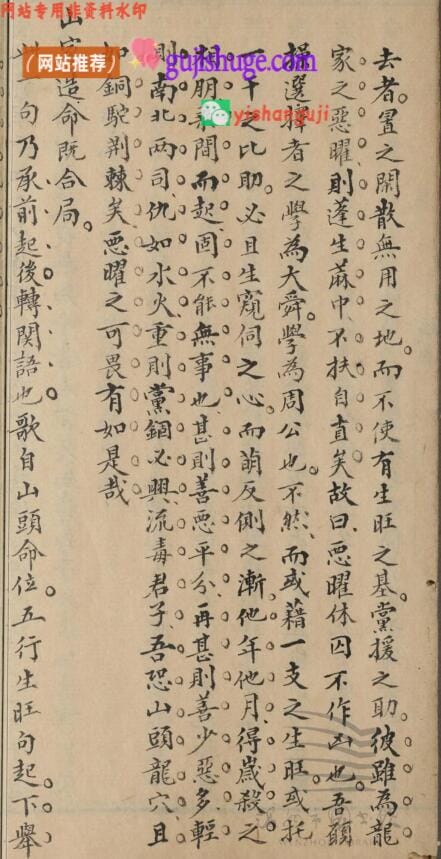 网站专用非资料水印
（网站推荐）
gujishuge.com
yishanguji
去者。置之閑散無用之地。而不使有生旺之基。黨援之助。彼雖為龍
家之惡曜。則蓬生蔴中。不扶自直矣。故曰。惡曜休囚不作凶也。吾願
操選擇者之學為大舜學為周公也。不然。而或藉一支之生旺。或托
一干之比助。必且生窺伺之心。而萌反側之漸。他年他月。得歲殺之
朋間而起。固不能無事也。甚則善惡平分。再甚則善少惡多。輕
則南北两司。仇如水火。重則黨錮必興。流毒君子。吾恐山頭龍穴。且
如銅駝荆棘矣。惡曜之可畏有如是哉
山家造命既合局。
此一句乃承前起後。轉関語也。歌自山頭命位。五行生旺句起。下舉